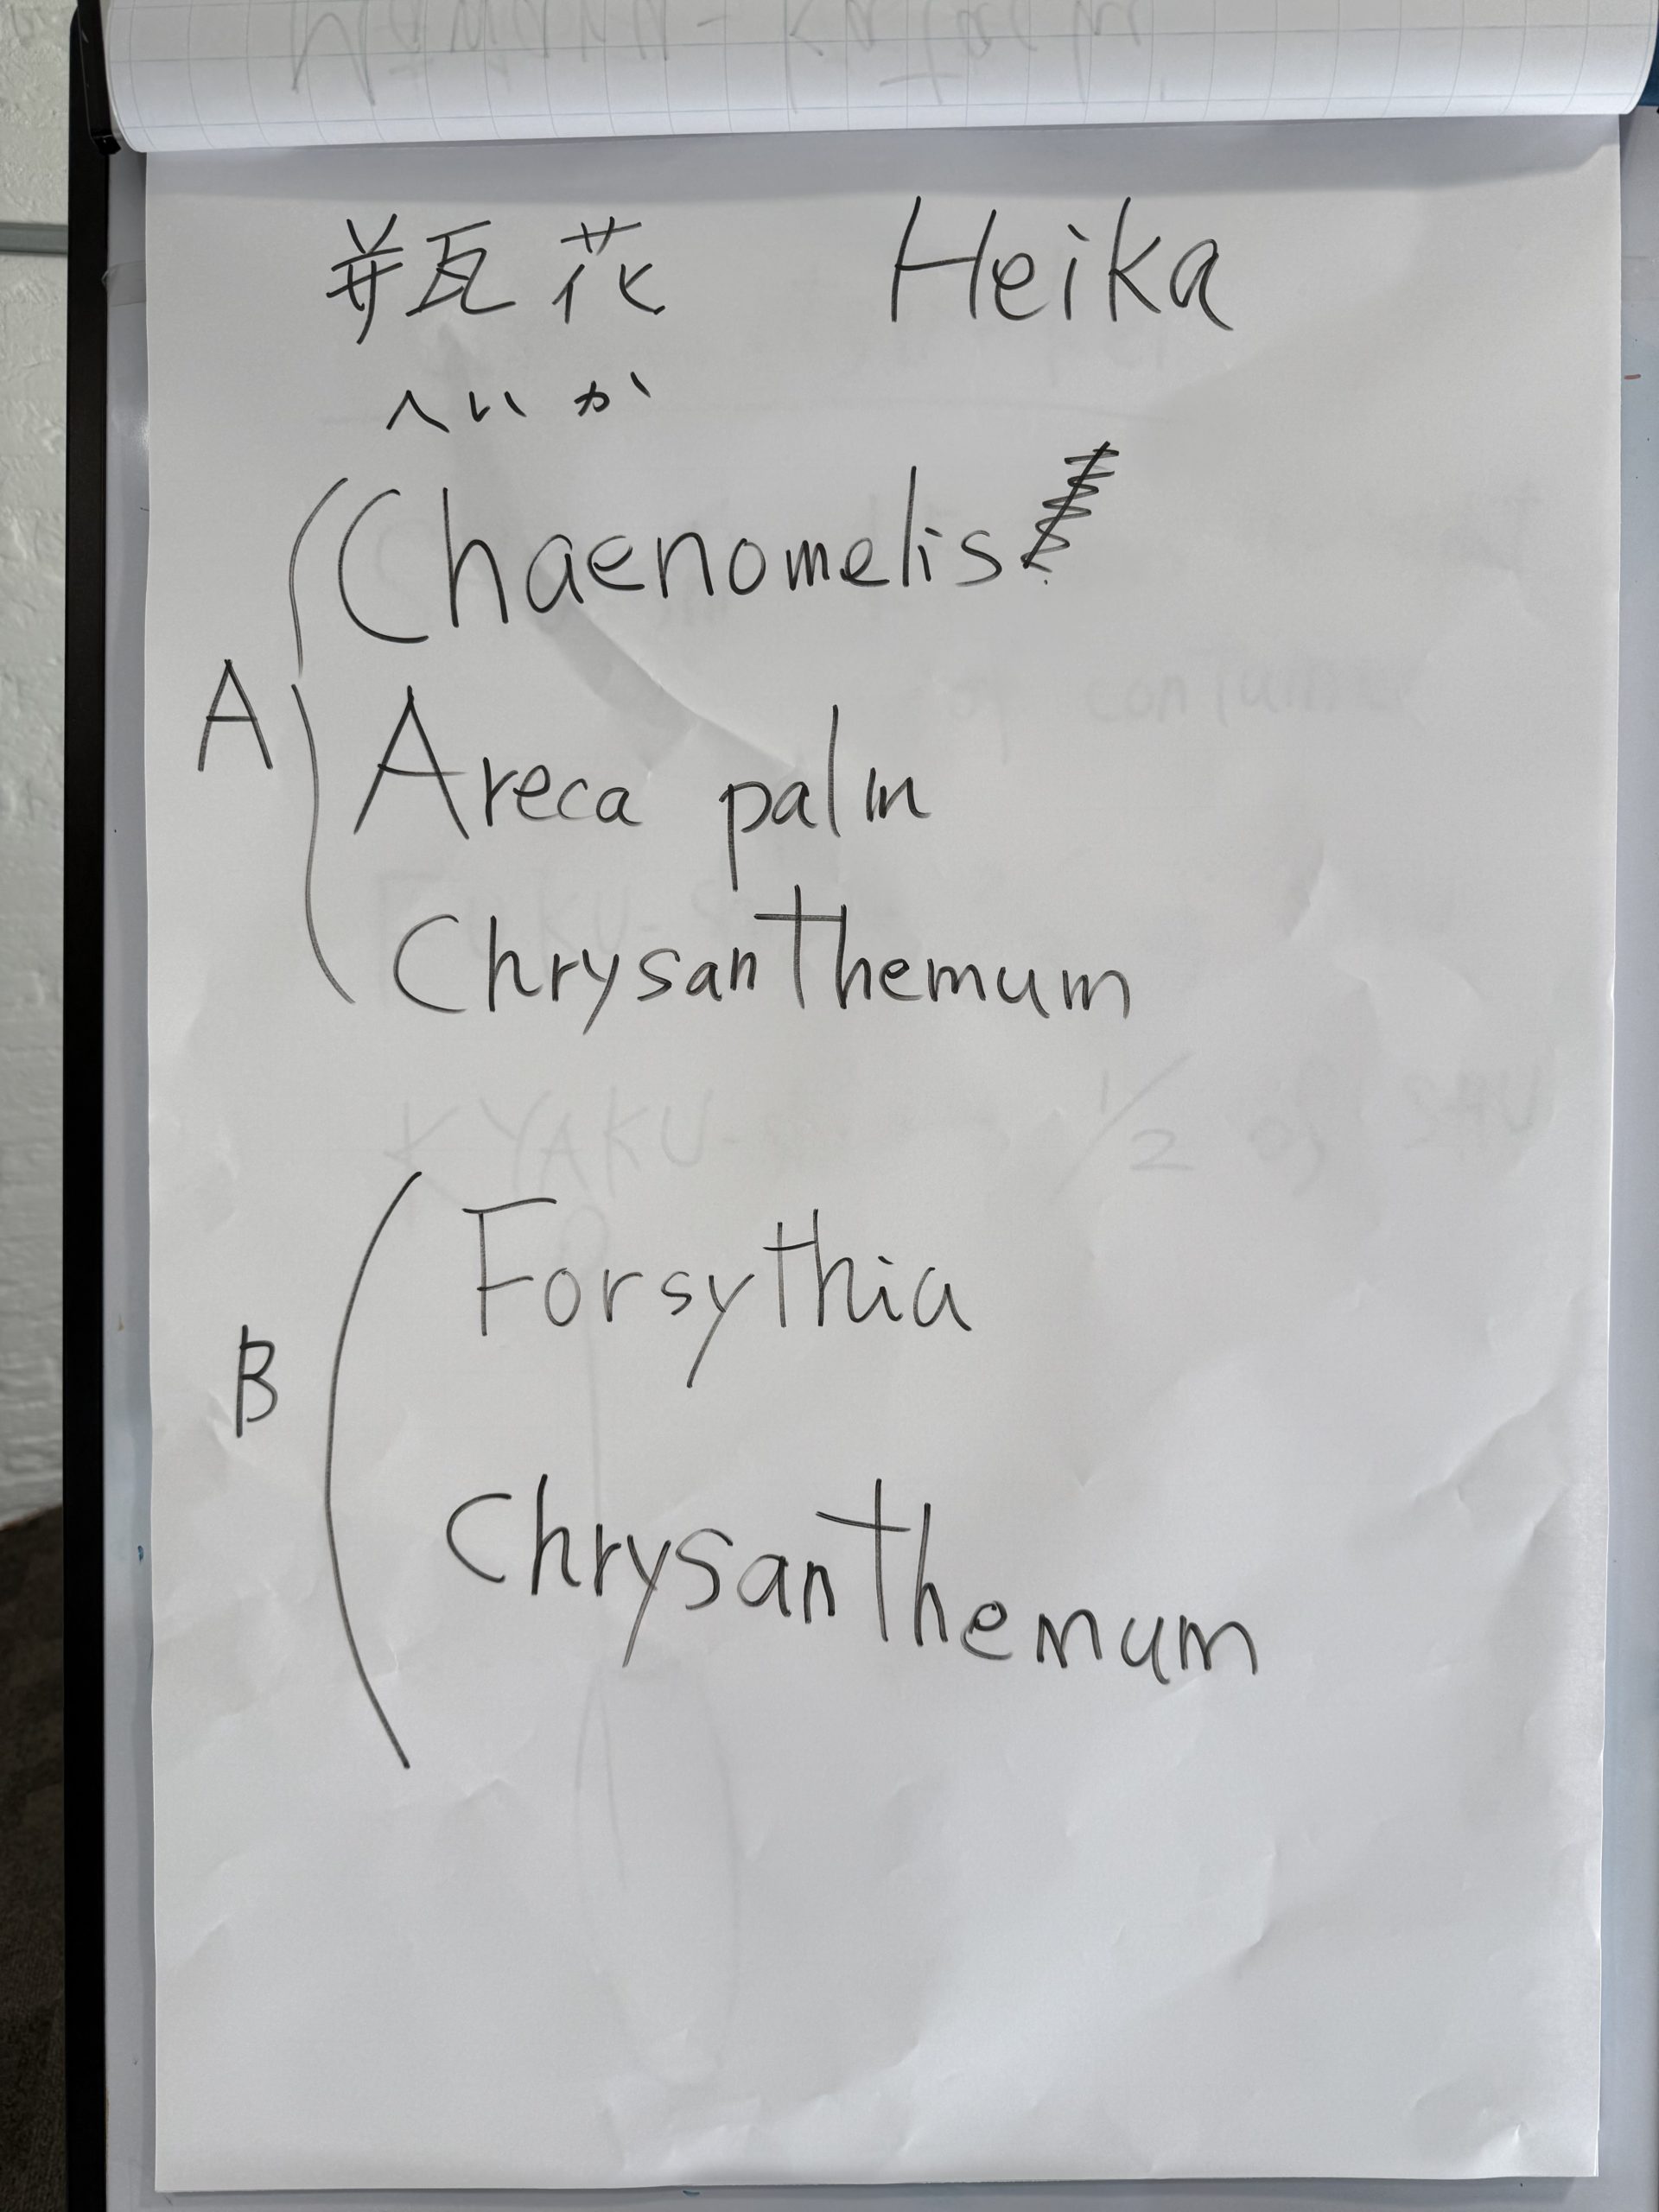 瓶花 Heika
へいか
Chaenomelis
A
Areca palm
Chrysanthemum
Forsythia
B
Chrysanthemum